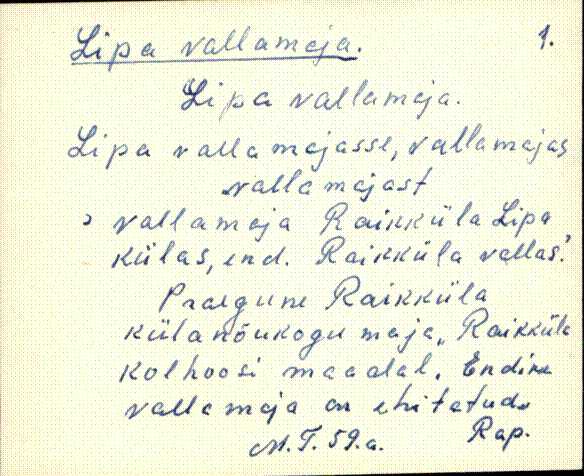 Lipa vallamaja. 1.
Lipa vallamaja.
Lipa vallamajasse, vallamajas
vallamajast
› vallamaja Raikküla Lipa
külas, end. Raikküla vallas.’
Praegune Raikküla
külanõukogu maja, Raikküla
kolhoosi maadal. Endine
vallamaja on ehitatud
M.T. 59.a. Rap.